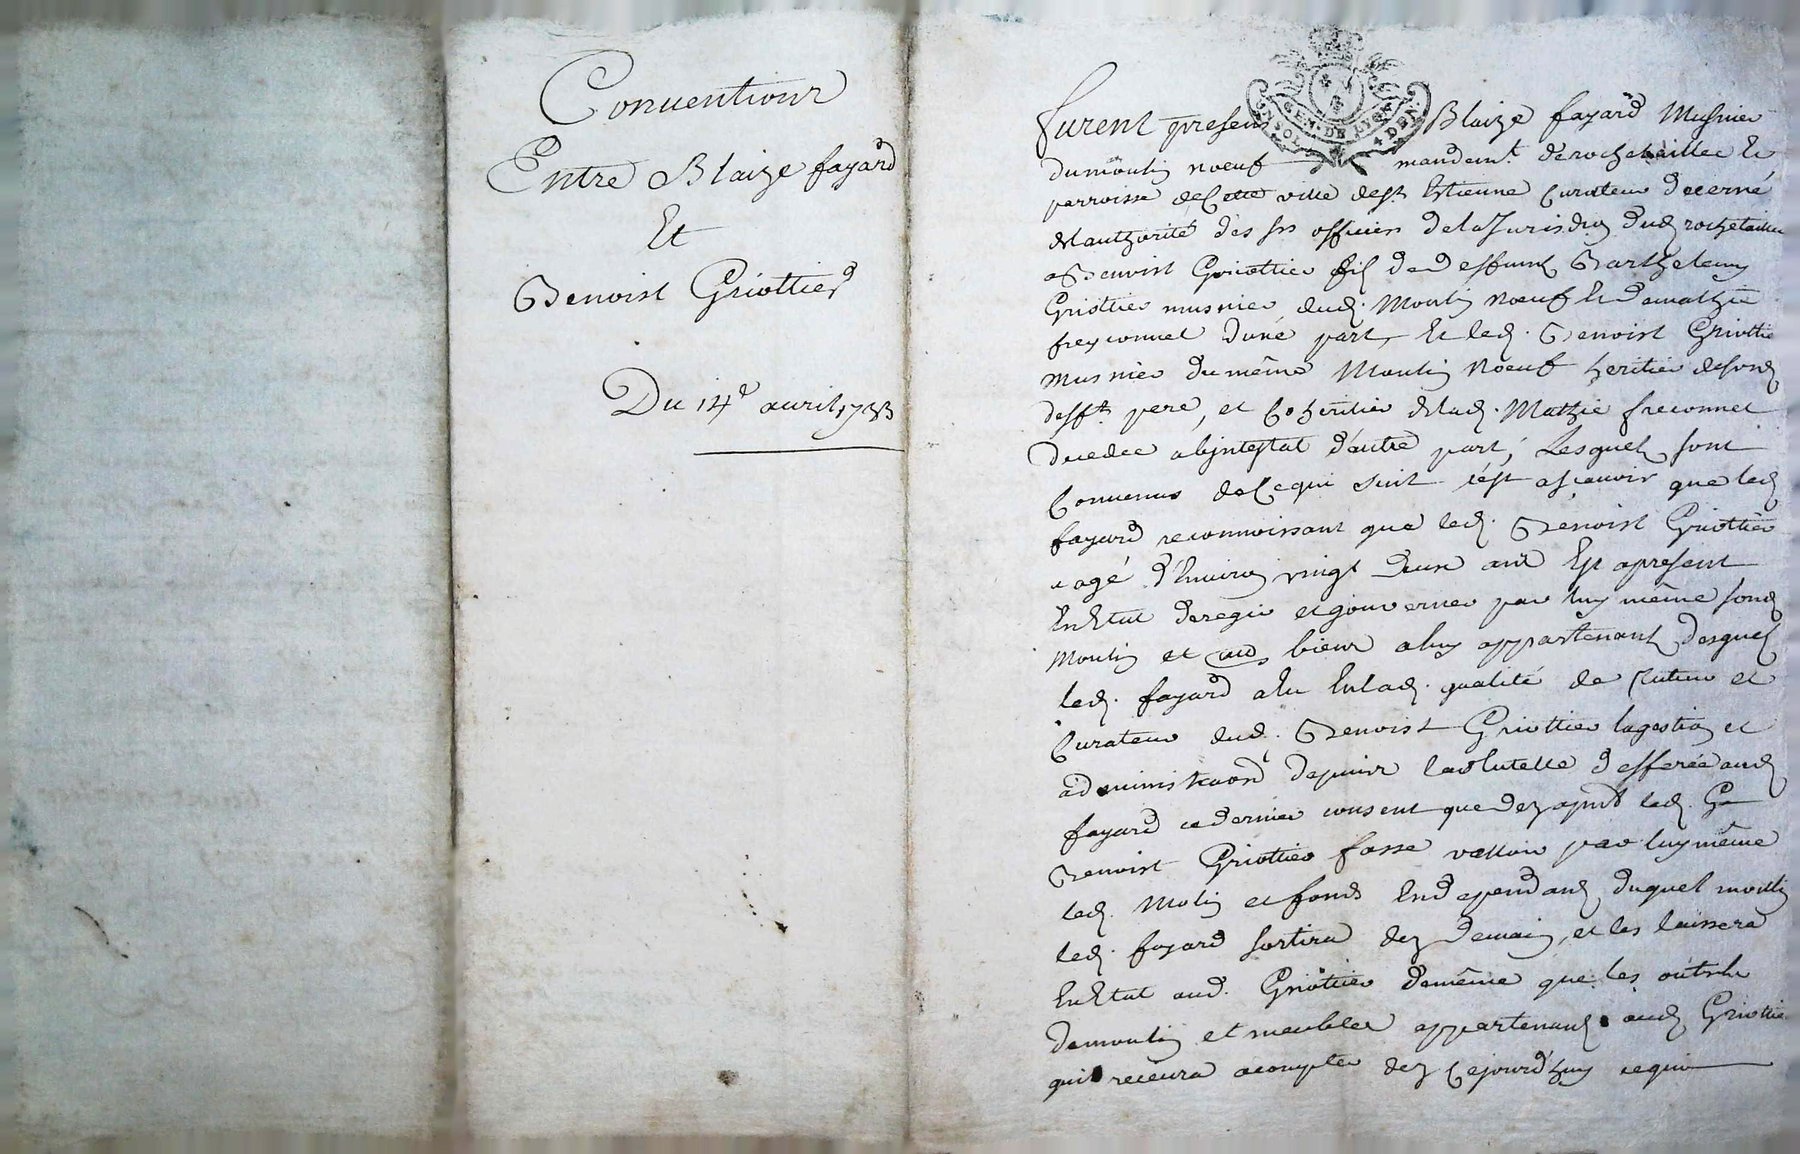 Conventions
Entre Blaize fayard
Et
Benoist Griottier
Du 14e avril 1733
GEN. DE LYON
furent presens Blaize fayard Musnier
du moulin noeuf mandemt. de rochetaillee et
parroisse de Cette ville de st. Estienne Curateur decerné
de l'authorité des srs officiers de la Jurisdon dud rochetaillee
a Benoist Griottier fils de deffunt Barthelemy
Griottier musnier dud. Moulin noeuf et de mathie
freyconnet d'une part, et led. Benoist Griottier
musnier du même Moulin noeuf heritier de sond
defft. pere, et Coheritier de lad. Mathie freconnet
decedee abjntestat d'autre part, Lesquels sont
Convenus de Ce qui suit c'est ascavoir que led
fayard reconnoissant que led. Benoist Griottier
agé d'Environ vingt deux ans Est a present
En Etat de regir et gouverner par luy même sond
moulin et biens a luy appartenant desquels
led. fayard a Eu En lad. qualité de Tuteur et
Curateur dud. Benoist Griottier la gestion et
administraon depuis la tutelle defferée aud
fayard ce dernier consent que dez a pnt led. G
Benoist Griottier fasse valloir par luy même
led. Molin et fonds En dependans duquel moulin
led. fayard sortira dez demain, et les laissera
En Etat aud. Griottier de même que les outils
de moulin et meubles appartenans aud Griottier
qui recevra a compter dez Cejourd'huy ce qui